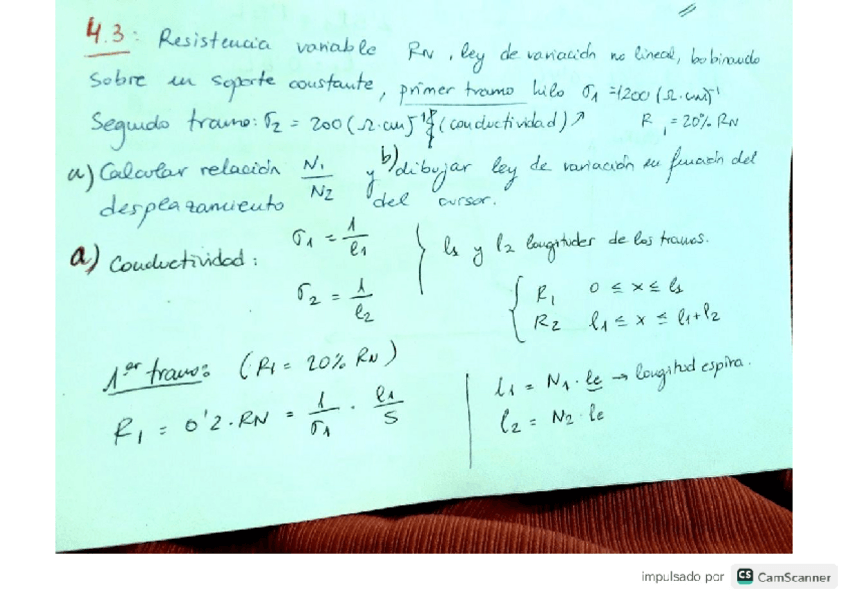 4.3: Resistencia variable RN, ley de variación no lineal, bobinando
sobre un soporte constante, primer tramo hilo σ1 = 1200 (Ω·cm)⁻¹
Segundo tramo: σ2 = 200 (Ω·cm)⁻¹ (conductividad) ↗ R1 = 20% RN
a) Calcular relación N1/N2 y b) dibujar ley de variación en función del
desplazamiento del cursor.
a) Conductividad: σ1 = 1/ρ1
σ2 = 1/ρ2
l1 y l2 longitudes de los tramos.
R1 0 ≤ x ≤ l1
R2 l1 ≤ x ≤ l1+l2
1er tramo: (R1 = 20% RN)
R1 = 0'2·RN = 1/σ1 · l1/S
l1 = N1·le → longitud espira.
l2 = N2·le
impulsado por CS CamScanner